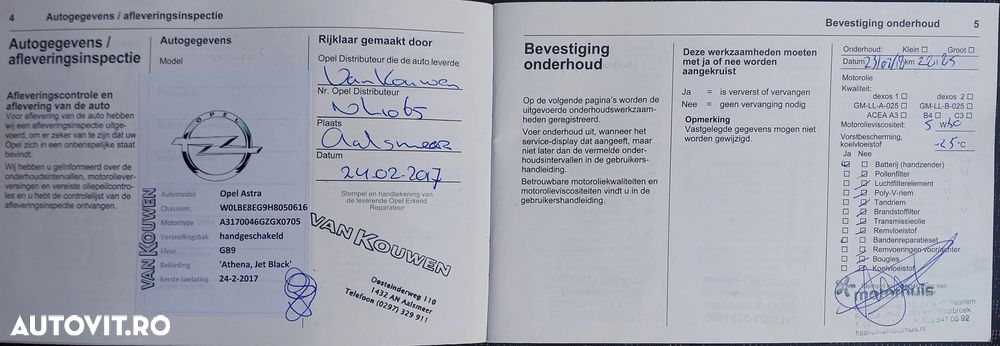 4 Autogegevens / afleveringsinspectie
Autogegevens /
afleveringsinspectie
Afleveringscontrole en
aflevering van de auto
Voor aflevering van de auto hebben
wij een afleveringsinspectie uitge-
voerd, om er zeker van te zijn dat uw
Opel zich in een onberispelijke staat
bevindt.
Wij hebben u geïnformeerd over de
onderhoudsintervallen, motorolever-
versingen en vereiste oliepeilcontro-
les en u hebt de controlelijst van de
afleveringsinspectie ontvangen.
Autogegevens
Model
OPEL
Automodel Opel Astra
Chassisnr. W0LBE8EG9H8050616
Motortype A3170046GZGX0705
Versnellingsbak handgeschakeld
Kleur GB9
Bekleding 'Athena, Jet Black'
Eerste toelating 24-2-2017
VAN KOUWEN
Rijklaar gemaakt door
Opel Distributeur die de auto leverde
Van Kouwen
Nr. Opel Distributeur
Plaats
Aalsmeer
Datum
24-02-2017
Stempel en handtekening van
de leverende Opel Erkend
Reparateur
VAN KOUWEN
Oosteinderweg 110
1432 AN Aalsmeer
Telefoon (0297) 329 911
Bevestiging onderhoud 5
Bevestiging
onderhoud
Op de volgende pagina's worden de
uitgevoerde onderhoudswerkzaam-
heden geregistreerd.
Voer onderhoud uit, wanneer het
service-display dat aangeeft, maar
niet later dan de vermelde onder-
houdsintervallen in de gebruikers-
handleiding.
Betrouwbare motoroliekwaliteiten en
motorolieviscositeiten vindt u in de
gebruikershandleiding.
Deze werkzaamheden moeten
met ja of nee worden
aangekruist
Ja = is ververst of vervangen
Nee = geen vervanging nodig
Opmerking
Vastgelegde gegevens mogen niet
worden gewijzigd.
Onderhoud: Klein □ Groot □
Datum km
Motorolie
Kwaliteit:
dexos 1 □ dexos 2 □
GM-LL-A-025 □ GM-LL-B-025 □
ACEA A3 □ B4 □ C3 □
Motorolieviscositeit: 5 W30
Vorstbescherming,
koelvloeistof -25 °C
Ja Nee
Batterij (handzender)
Pollenfilter
Luchtfilterelement
Poly-V-riem
Tandriem
Brandstoffilter
Transmissieolie
Remvloeistof
Bandenreparatieset
Remvoeringen voor/achter
Bougies
Koelvloeistof
motorhuis
AUTOVIT.RO